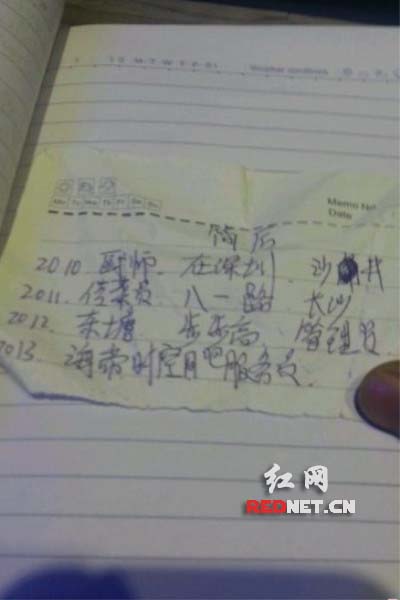 Memo No.
Mo Tu We Th Fr Sa Su
Date
简历
2010 厨师. 在深圳. 沙井
2011. 传菜员 八一路. 长沙
2012. 东塘 步步高 管理员
2013. 海帝时空月吧服务员.
红网
REDNET.CN